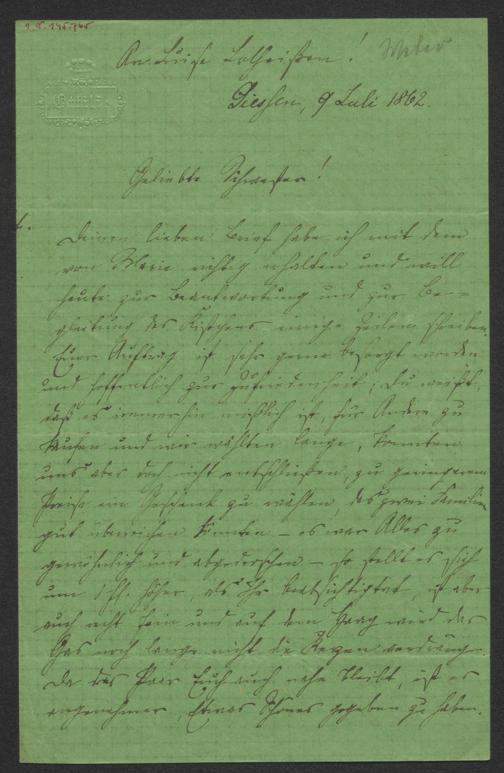 An Luise Lotheißen!
Giessen, 9 Juli 1862.
Geliebte Schwester!
Deinen lieben Brief habe ich mit dem
von Marie richtig erhalten und will
heute zur Beantwortung und zur Be-
gleitung des Kistchens einige Zeilen schreiben.
Euer Auftrag ist sehr gerne besorgt worden
und hoffentlich zur Zufriedenheit; Du weißt,
daß es immerhin mißlich ist, für Andere zu
kaufen und wir wählten lange, konnten
uns aber doch nicht entschließen, zu geringerem
Preise ein Geschenk zu wählen, das zwei Familien
gut überreichen könnten – es war Alles zu
gewöhnlich und abgedroschen – so stellt es sich
um 1 fl. höher, als Ihr beabsichtigtet, ist aber
auch recht fein und auf dem Haag wird das
Gas noch lange nicht die Kerzen verdrängen.
Da das Paar Euch auch nahe bleibt, ist es
angenehmer, Etwas Schönes gegeben zu haben.